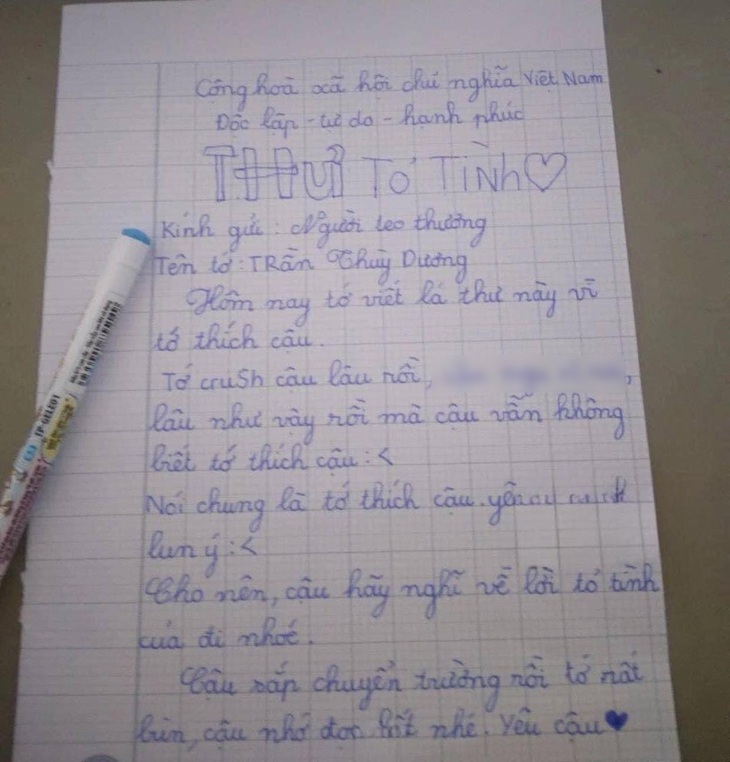 Cộng hoà xã hội chủ nghĩa Việt Nam
Độc lập - tự do - hạnh phúc
THƯ TỎ TÌNH♡
Kính gửi: Người teo thường
Tên tớ: TRần Thuỳ Dương
Hôm nay tớ viết lá thư này vì
tớ thích cậu.
Tớ cruSh cậu lâu rồi,
lâu như vậy rồi mà cậu vẫn không
biết tớ thích cậu :<
Nói chung là tớ thích cậu.
lun ý :<
Cho nên, cậu hãy nghĩ về lời tỏ tình
của đi nhoé.
Cậu sắp chuyển trường rồi tớ rất
bùn, cậu nhớ đọc nhé. Yêu cậu♥
TP-GELE01